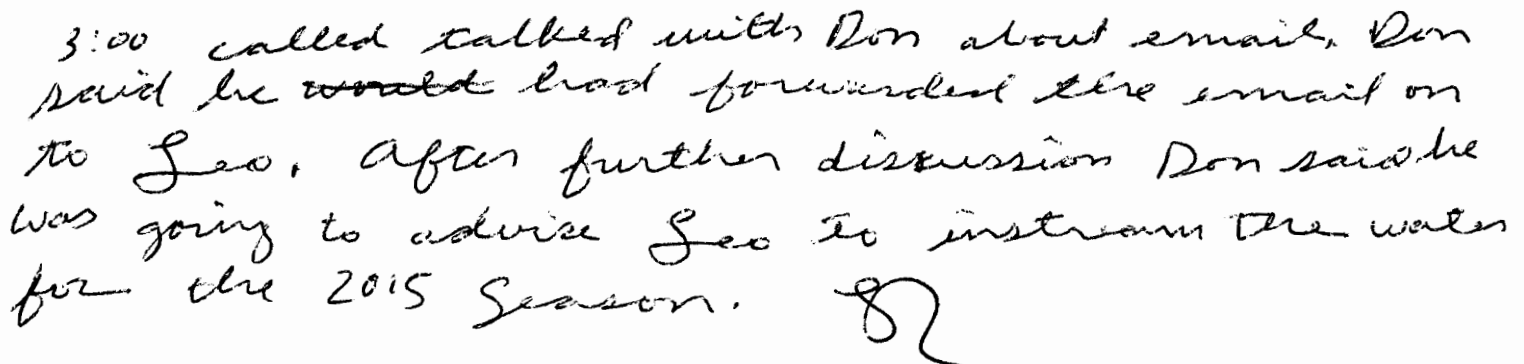 3:00 called talked with Don about email. Don
said he would had forwarded the email on
to Leo. After further discussion Don said he
was going to advise Leo to instream the water
for the 2015 Season.